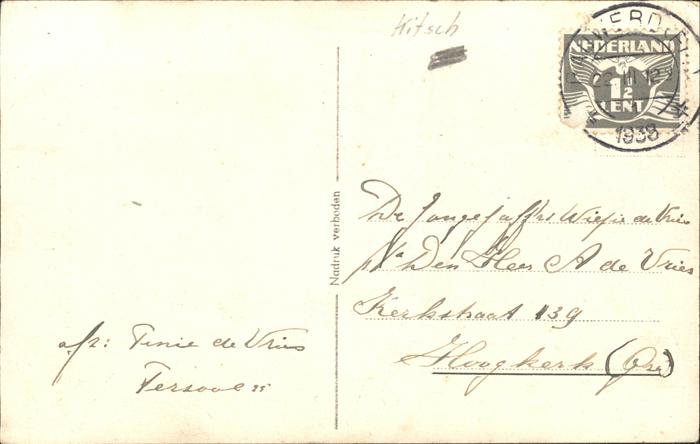 Kitsch
NEDERLAND
1½
CENT
1938
Nadruk verboden
De Jongejuffr Wiepie de Vries
p/a Den Heer A de Vries
Kerkstraat 139
Hoogkerk (Gr)
afz: Tinie de Vries